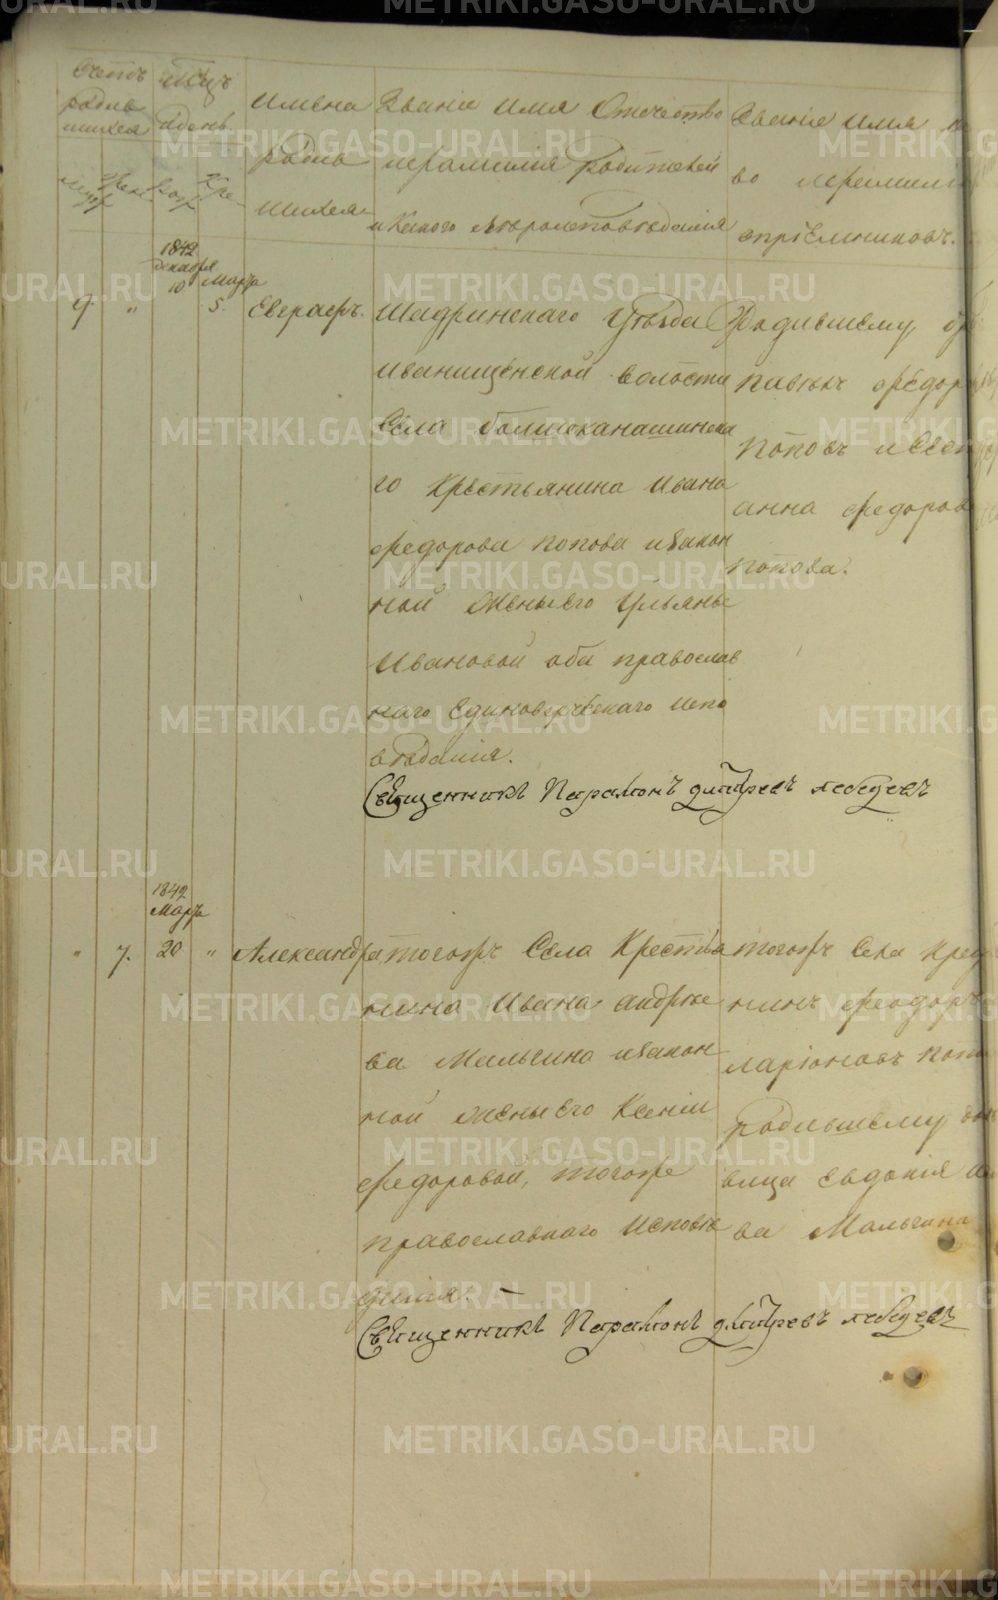 METRIKI.GASO-URAL.RU
Счетъ
родив
шихся
муж. жен.
Мсцъ
и день
рож. кре.
Имена
родив
шихся
Званіе имя Отечество
и фамилія родителей
и Какого Вѣроисповѣданія
Званіе имя
во и фамилія
воспріемниковъ.
9. „
1842
декабря
10
Марта
5.
Евграфъ.
Шадринскаго Уѣзда
Иванищенской волости
Села большеканашинска
го Крестьянина Ивана
федорова попова и закон
ной жены его Ульяны
Ивановой оба православ
наго Единоверческаго испо
вѣданія.
Родившему
павелъ федор
поповъ и
анна федоров
попова.
Священникъ Парамонъ дмитревъ лебедевъ
„ 7.
1842
Марта
20 „
Александра
тогожъ Села Крестья
нина Ивана андрѣе
ва Мальгина и закон
ной жены его Ксеніи
федоровой, тогоже
православнаго исповѣ
данія. —
тогожъ Села Крест
нинъ феодоръ
ларіоновъ поп
родившему
вица евдокія
ва Мальгина
Священникъ Парамонъ дмитревъ лебедевъ